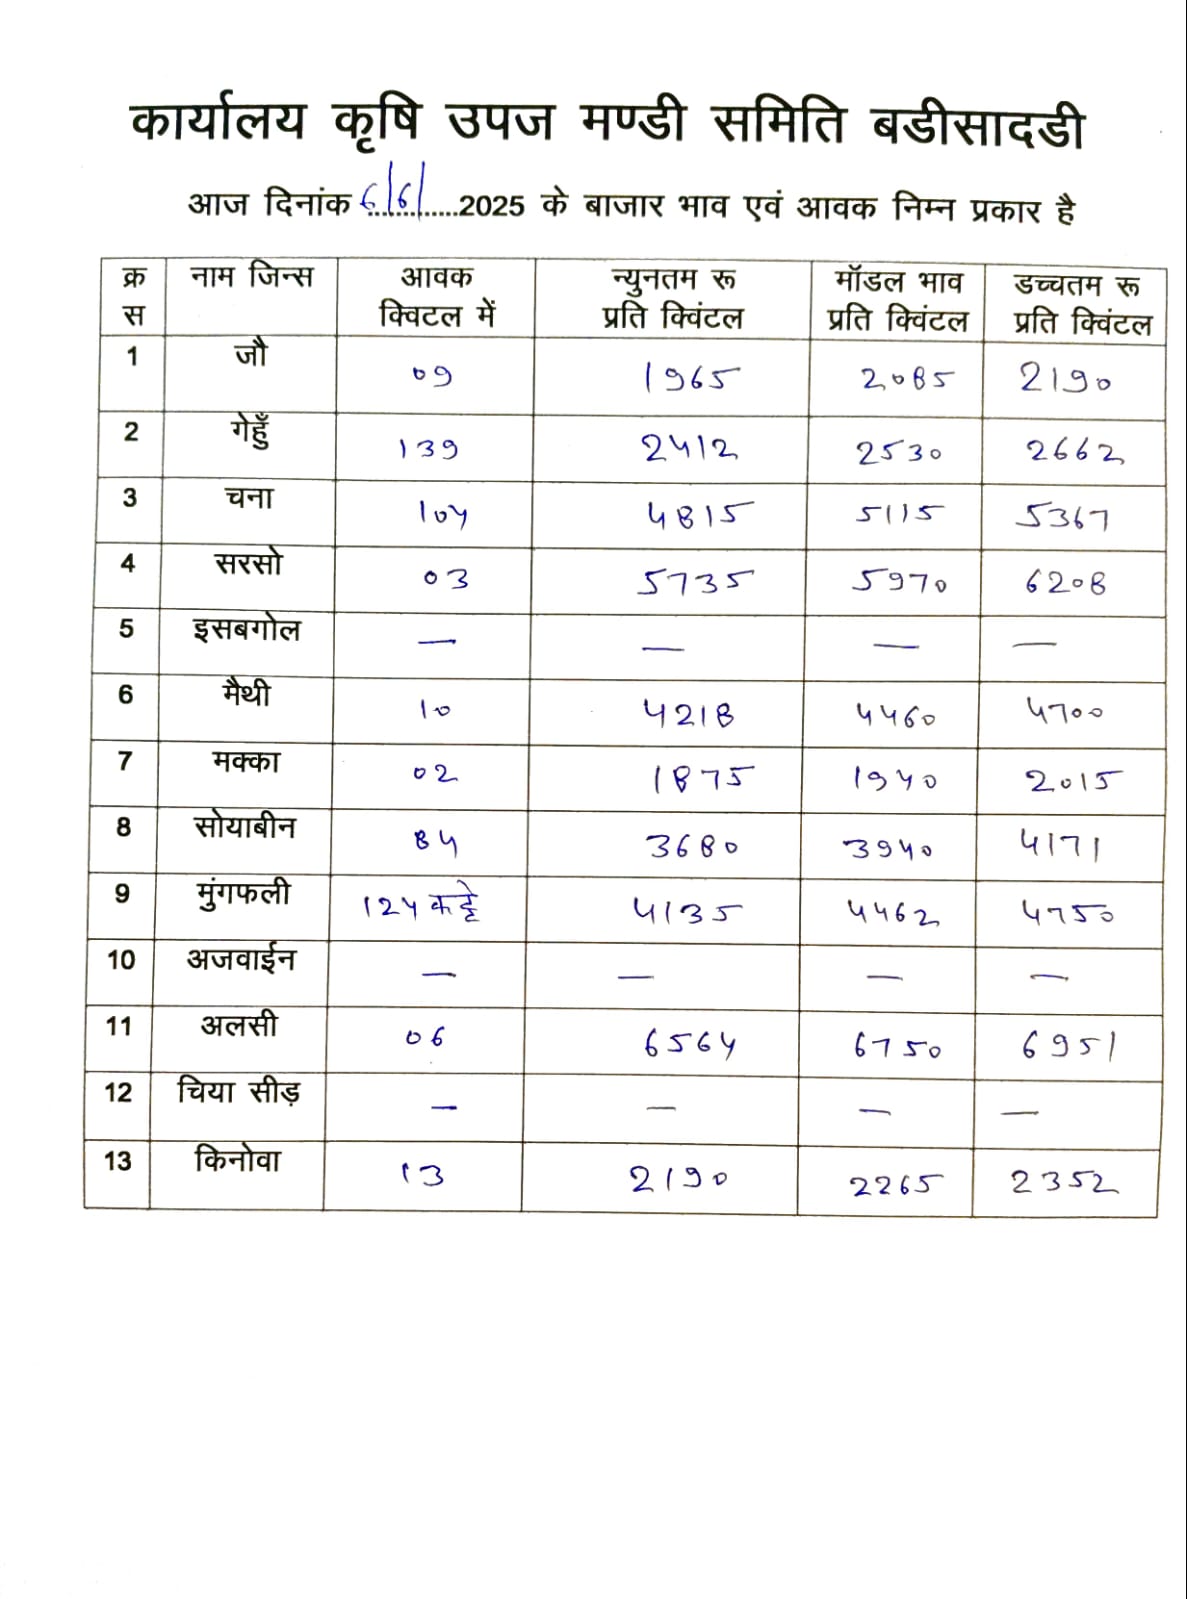 कार्यालय कृषि उपज मण्डी समिति बडीसादडी
आज दिनांक 6/6/.............2025 के बाजार भाव एवं आवक निम्न प्रकार है
क्र स नाम जिन्स आवक क्विटल में न्युनतम रू प्रति क्विंटल मॉडल भाव प्रति क्विंटल डच्चतम रू प्रति क्विंटल
1 जौ 09 1965 2085 2190
2 गेहुँ 139 2412 2530 2662
3 चना 104 4815 5115 5367
4 सरसो 03 5735 5970 6208
5 इसबगोल — — — —
6 मैथी 10 4218 4460 4700
7 मक्का 02 1875 1940 2015
8 सोयाबीन 84 3680 3940 4171
9 मुंगफली 124 कट्टे 4135 4462 4750
10 अजवाईन — — — —
11 अलसी 06 6564 6750 6951
12 चिया सीड़ — — — —
13 किनोवा 13 2190 2265 2352